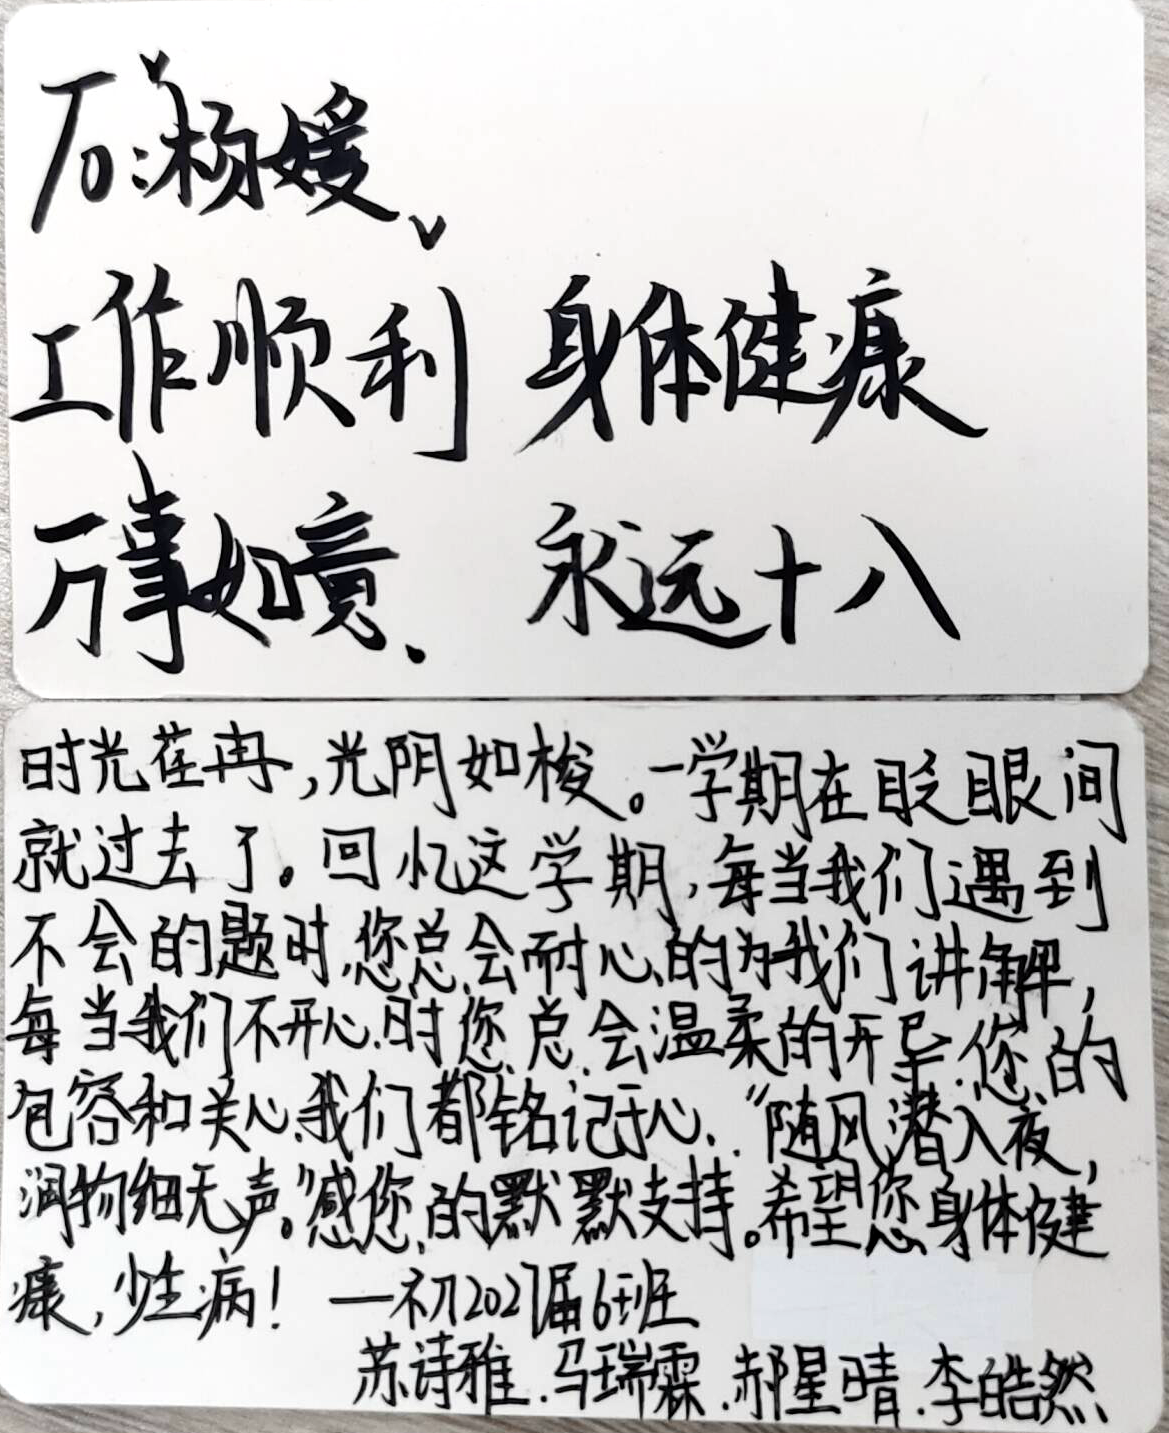 To:杨媛
工作顺利 身体健康
万事如意. 永远十八
时光荏苒,光阴如梭。一学期在眨眼间
就过去了。回忆这学期,每当我们遇到
不会的题时,您总会耐心的为我们讲解,
每当我们不开心时您总会温柔的开导.您的
包容和关心,我们都铭记于心."随风潜入夜,
润物细无声。"感您的默默支持。希望您身体健
康,少生病! —初2027届6班
苏诗雅.马瑞霖.郝星晴.李皓然